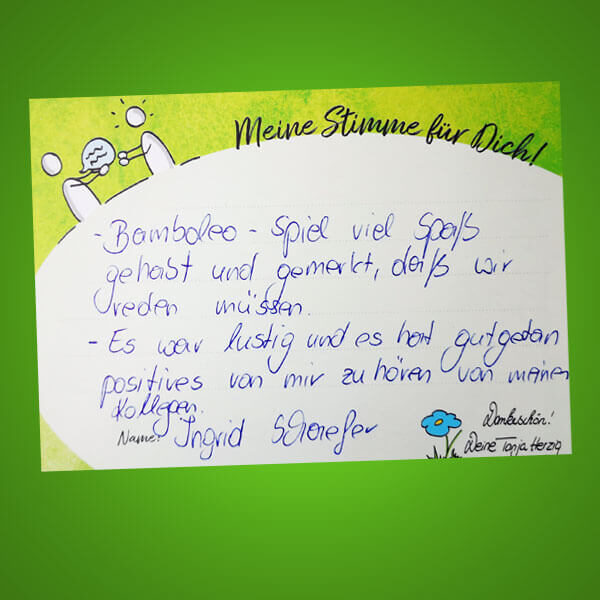 Meine Stimme für Dich!
- Bamboleo - Spiel viel Spaß
gehabt und gemerkt, daß wir
reden müssen.
- Es war lustig und es hat gutgetan
positives von mir zu hören von meinen
Kollegen.
Name: Ingrid Schaefer
Dankeschön!
Deine Tanja Herzig